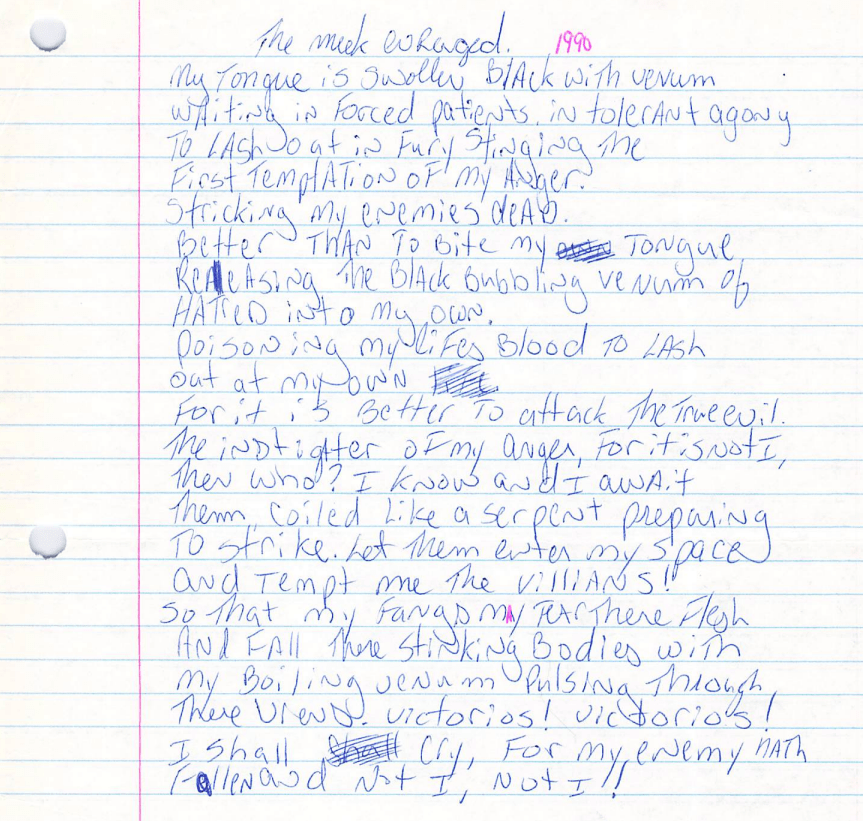 The meek enraged. 1990
My Tongue is Swollen Black with venum
waiting in Forced patients. in tolerant agony
To Lash out in Fury Stinging The
First Temptation of my Anger.
Stricking my enemies dead.
Better Than To Bite my Tongue
Releasing The Black Bubbling venum of
Hatred into my own.
Poisoning my lifes Blood To Lash
out at my own
For it is Better To attack The True evil.
The instigatter of my anger, For it is not I,
Then who? I know and I await
them, coiled Like a serpent preparing
To strike. Let Them enter my space
and Tempt me The villians!
So That my Fangs my Tear There Flesh
And Fall There Stinking Bodies with
my Boiling venum Pulsing Through,
There viens. victorios! victorios!
I shall Cry, For my enemy hath
Fallen and Not I, Not I!!